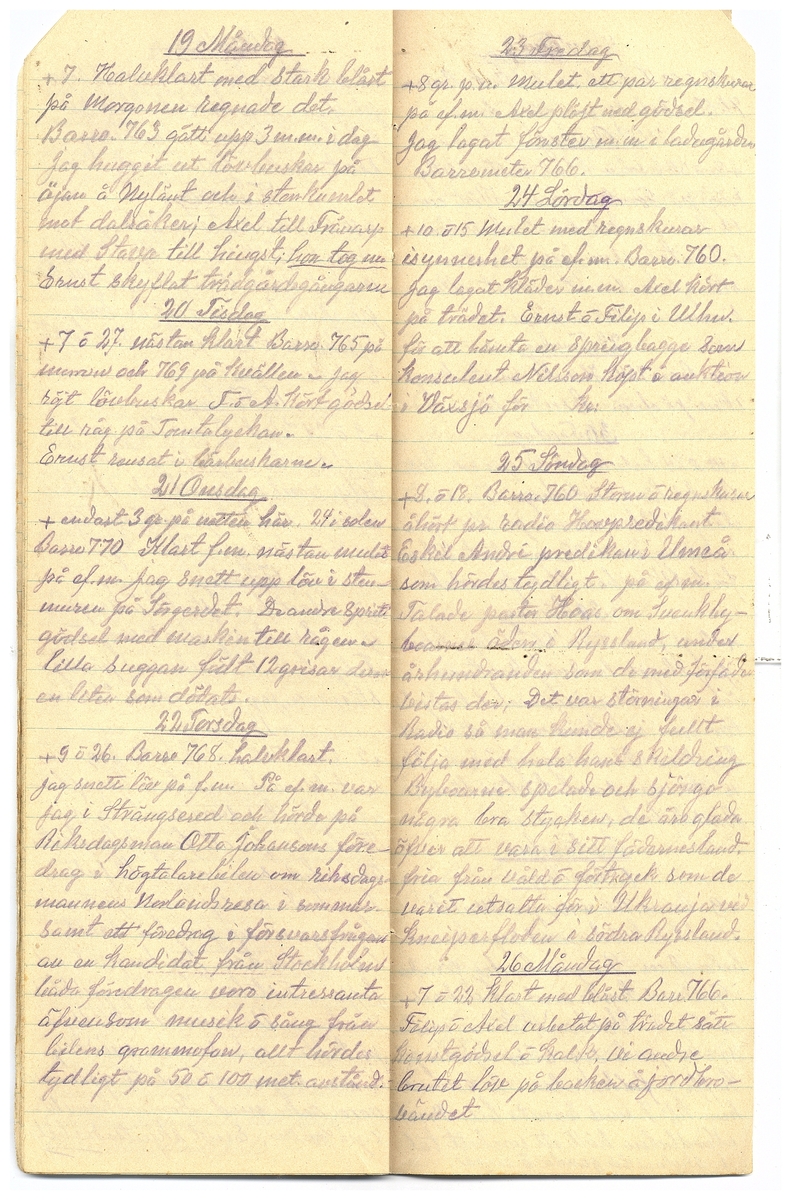 19 Måndag
+7. Halvklart med stark blåst
på Morgonen regnade det.
Barro. 763 gått upp 3 m.m. i dag
jag hugget ut lövbuskar på
å Nylånt och i stenkumlet
mot dalsåker; Axel till
med till hingst; hon tog
Ernst skyflat trädgårdsgångarne
20 Tisdag
+7 o 27. nästan klart Barro 765 på
morron och 769 på kvällen. jag
röjt lövbuskar F. o A. kört gödsel
till råg på Tomtalyckan.
Ernst rensat i bärbuskarne.
21 Onsdag
+ endast 3 gr. på natten här. 24 i solen
Barro 770 Klart f.m. nästan mulet
på ef.m. jag snett upp löv i sten-
muren på Sörgerdet. De andre spritt
gödsel med maskin till rågen.
Lilla suggan födt 12 grisar derav
en liten som dödats.
22 Torsdag
+9 o 26. Barro 768. halvklart.
jag snett löv på f.m. På ef.m. var
jag i Strängsered och hörde på
Riksdagsman Otto Johansons före-
drag i högtalarebilen om riksdags-
mannens Norlandsresa i sommar
samt ett föredrag i försvarsfrågan
av en kandidat från Stockholm
båda föredragen voro intressanta
äfvensom musik o sång från
bilens grammofon, allt hördes
tydligt på 50 o 100 met. avstånd.
23 Fredag
+8 gr. p.m. Mulet. ett par regnskurar
på ef.m. Axel plöjt ned gödsel.
Jag lagat fönster m.m. i ladugården
Barrometer 766.
24 Lördag
+10 o 15 Mulet med regnskurar
isynnerhet på ef.m. Barro. 760.
Jag lagat kläder m.m. Axel kört
på trädet. Ernst o Filip i Ulhn.
för att hämta en springbagge som
Konsulent Nilsson köpt å auktion
i Växsjö för kr:
25 Söndag
+8. o 18. Barro. 760 Storm o regnskurar
åhört pr radio Hovpredikant
Eskil Andræ predikan i Umeå
som hördes tydligt. på ef.m.
Talade pastor Hoas om Svenskby-
boarnes öden i Ryssland, under
århundranden som de med förfäder
vistas der; Det var störningar i
Radio så man kunde ej fullt
följa med hela hans skildring
Byboarne spelade och sjöngo
några bra stycken, de äro glada
öfver att vara i sitt fädernesland.
fria från våld o förtryck som de
varit utsatta för i Ukranja vid
Kneiperfloden i södra Ryssland.
26 Måndag
+7 o 22 klart med blåst Baro 766.
Filip o Axel arbetat på trädet sått
konstgödsel o kalk, vi andre
brutet löv på backen å jordbro-
vändet